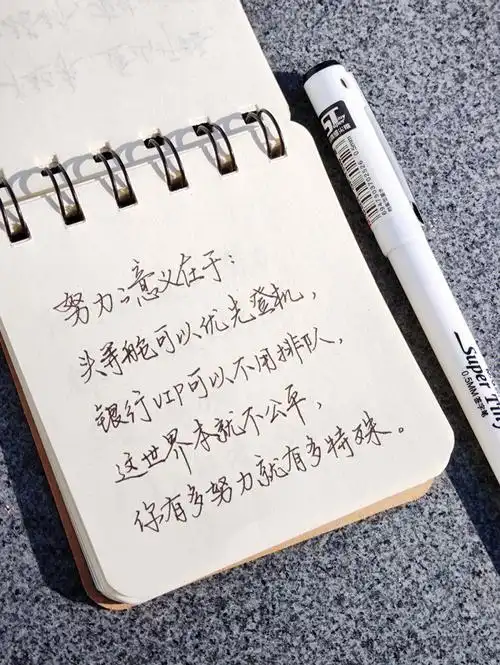 努力意义在于：
头等舱可以优先登机，
银行VIP可以不用排队，
这世界本就不公平，
你有多努力就有多特殊。
ST
0.5mm
Super Tip
0.5MM